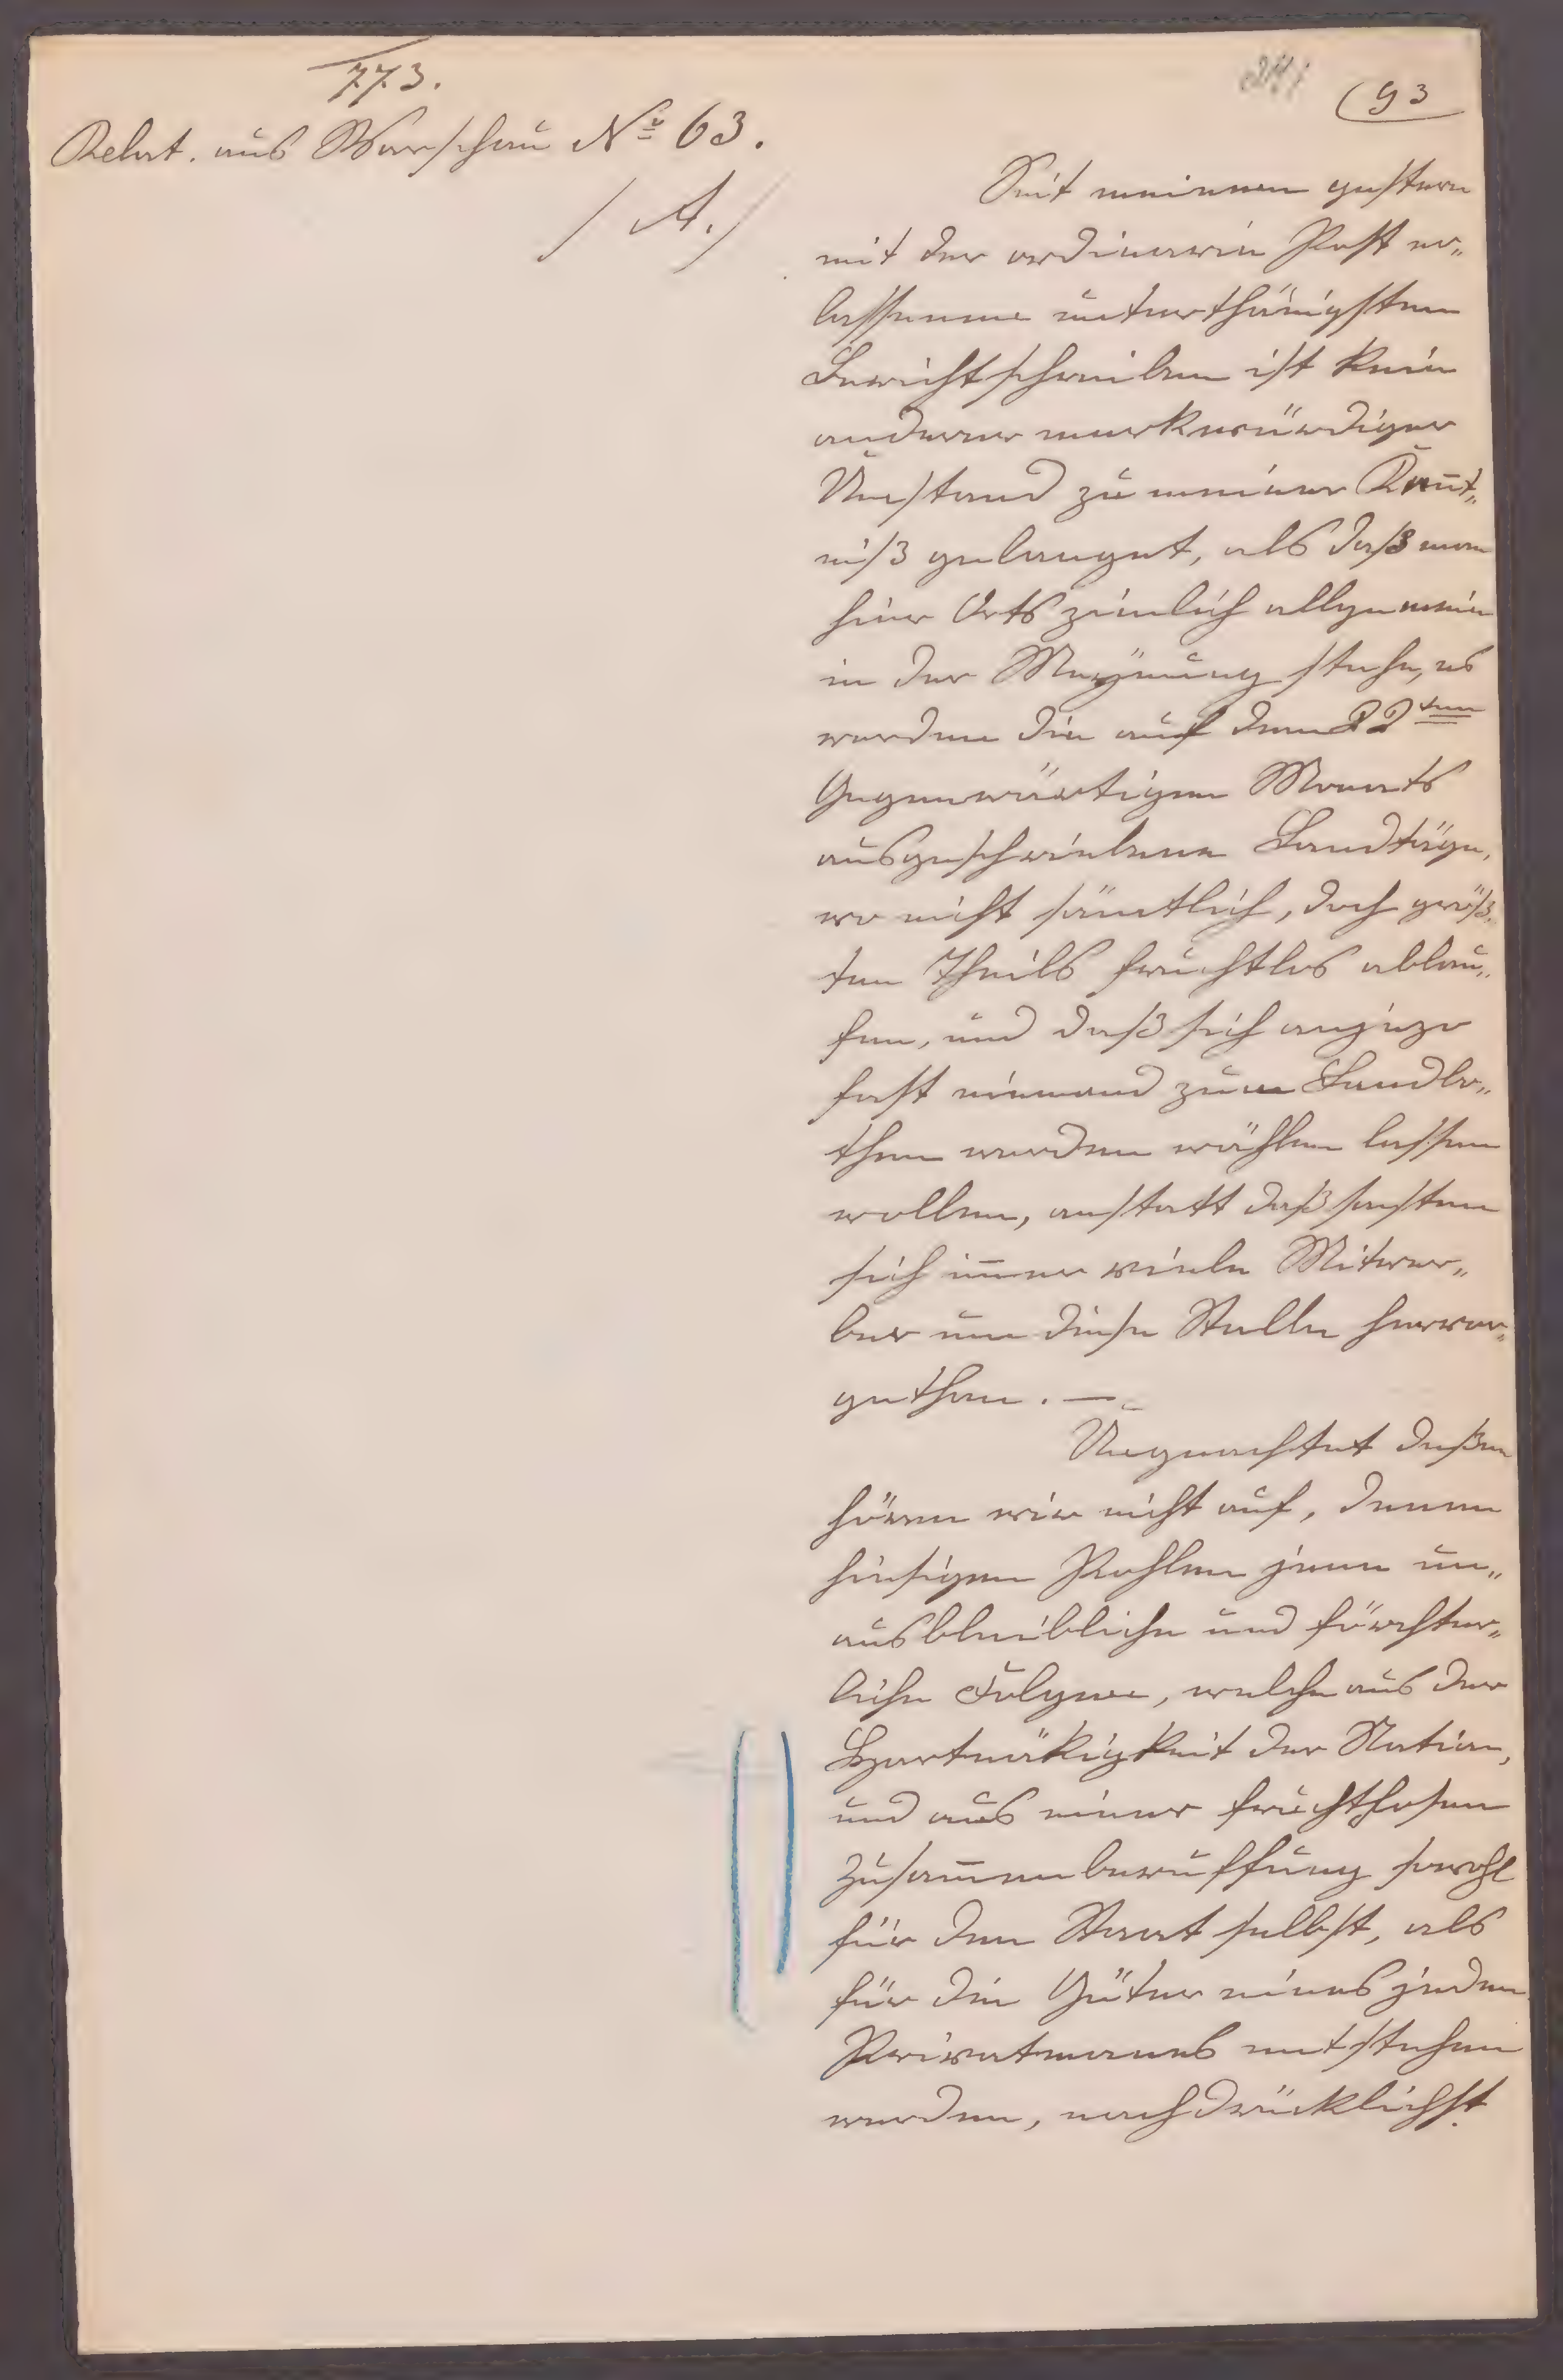 773.
93
Relat. aus Warschau No 63.
/ A. /
Seit meinem gestern
mit der ordinarin Post er„
lassenem unterthänigsten
Berichtschreiben ist kein
anderer merkwürdiger
Umstand zu meiner Kennt„
niß gelanget, als daß man
hier Orts zimlich allgemein
in der Meÿnung stehe, es
werden die auf den 22ten
Gegenwärtigen Monats
ausgeschriebene Landtäge,
wo nicht sämtlich, doch größ„
ten Theils fruchtlos ablau„
fen, und daß sich anjezo
fast niemand zum Landbo„
then werden wählen lassen
wollen, anstatt daß sonsten
sich immer viele Mitwer„
ber um diese Stelle hervor„
gethan. —
Ungeachtet deßen
hören wir nicht auf, denen
hiesigen Pohlen jene un„
ausbleibliche und förchter„
liche Folgen, welche aus der
Hartnäkigkeit der Nation,
und aus einer fruchtlosen
Zusammenberuffung sowohl
für den Staat selbst, als
für die Güter eines jeden
Privatmanns entstehen
werden, nachdrücklichst